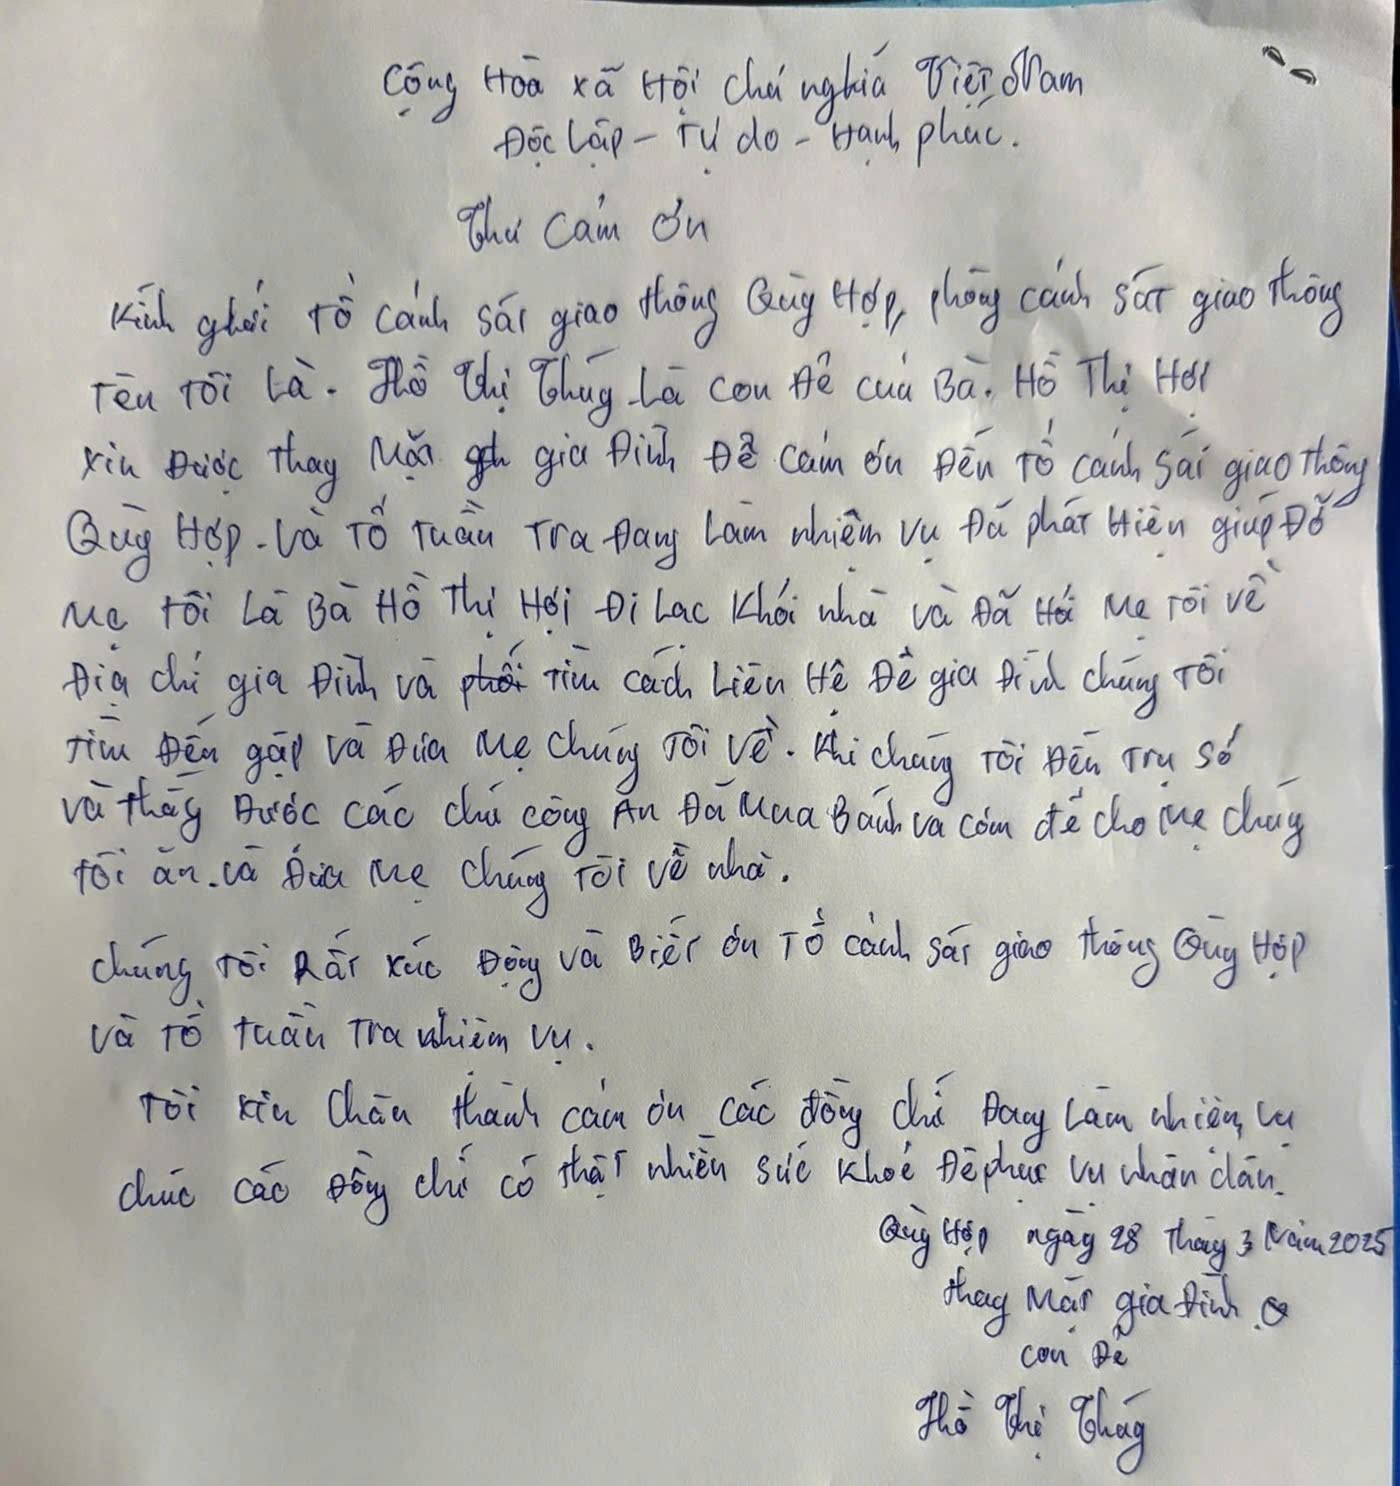 Cộng Hoà xã Hội chủ nghĩa Việt Nam
Độc Lập - Tự do - Hạnh phúc.
Thư Cảm ơn
Kính gửi Tổ Cảnh sát giao thông Quỳ Hợp, phòng cảnh sát giao thông
Tên Tôi Là. Hồ Thị Thắng Là con Đẻ của Bà. Hồ Thị Hợi
xin Được thay Mặt gia Đình Để cảm ơn Đến Tổ cảnh sát giao thông
Quỳ Hợp. Và Tổ Tuần Tra Đang Làm nhiệm vụ Đã phát Hiện giúp Đỡ
Mẹ Tôi Là Bà Hồ Thị Hợi Đi Lạc khỏi nhà và Đã Mẹ Tôi về
Địa chỉ gia Đình và phối Tìm cách Liên Hệ Để gia Đình chúng Tôi
Tìm Đến gặp và Đưa Mẹ chúng Tôi Về. Khi chúng Tôi Đến Trụ Sở
và thấy Được các chú công An Đã Mua Bánh và cơm để cho Mẹ chúng
tôi ăn. và Đưa Mẹ chúng Tôi về nhà.
chúng Tôi Rất xúc Động và Biết ơn Tổ cảnh sát giao thông Quỳ Hợp
và Tổ tuần Tra nhiệm vụ.
Tôi xin Chân thành cảm ơn các đồng chí Đang Làm nhiệm vụ
chúc các Đồng chí có thật nhiều sức khoẻ Để phục vụ nhân dân.
Quỳ Hợp ngày 28 Tháng 3 Năm 2025
thay Mặt gia Đình
con Đẻ
Hồ Thị Thắng